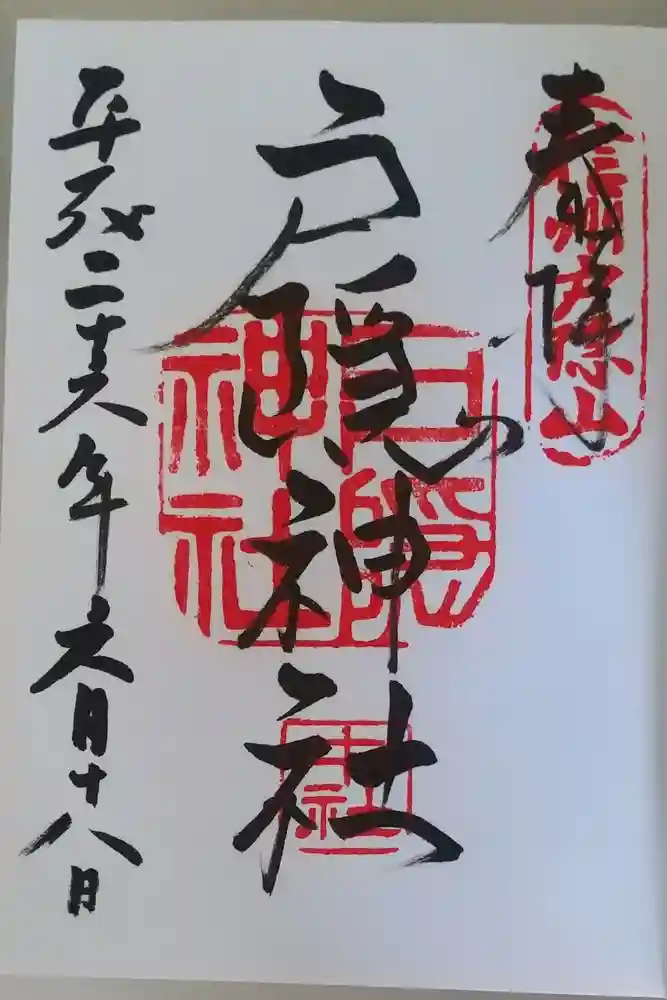 奉拝
信州戸隠山
戸隠神社
戸隠神社
中社
平成二十六年六月十八日